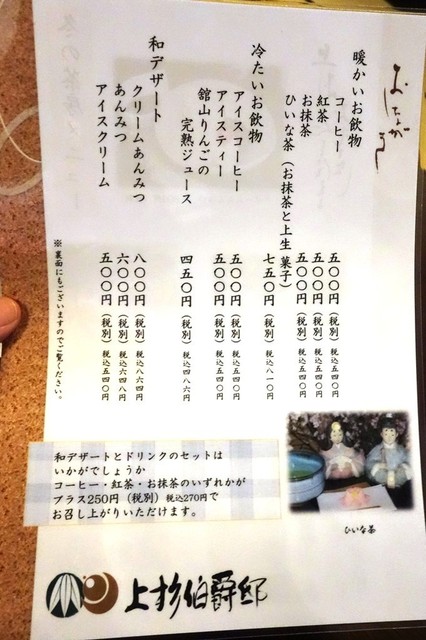 おしながき
暖かいお飲物
コーヒー 五〇〇円（税別）税込五四〇円
紅茶 五〇〇円（税別）税込五四〇円
お抹茶 五〇〇円（税別）税込五四〇円
ひいな茶（お抹茶と上生菓子） 七五〇円（税別）税込八一〇円
冷たいお飲物
アイスコーヒー 五〇〇円（税別）税込五四〇円
アイスティー 五〇〇円（税別）税込五四〇円
舘山りんごの
完熟ジュース 四五〇円（税別）税込四八六円
和デザート
クリームあんみつ 八〇〇円（税別）税込八六四円
あんみつ 六〇〇円（税別）税込六四八円
アイスクリーム 五〇〇円（税別）税込五四〇円
※裏面にもございますのでご覧ください。
和デザートとドリンクのセットは
いかがでしょうか
コーヒー・紅茶・お抹茶のいずれかが
プラス250円（税別）税込270円で
お召し上がりいただけます。
ひいな茶
上杉伯爵邸